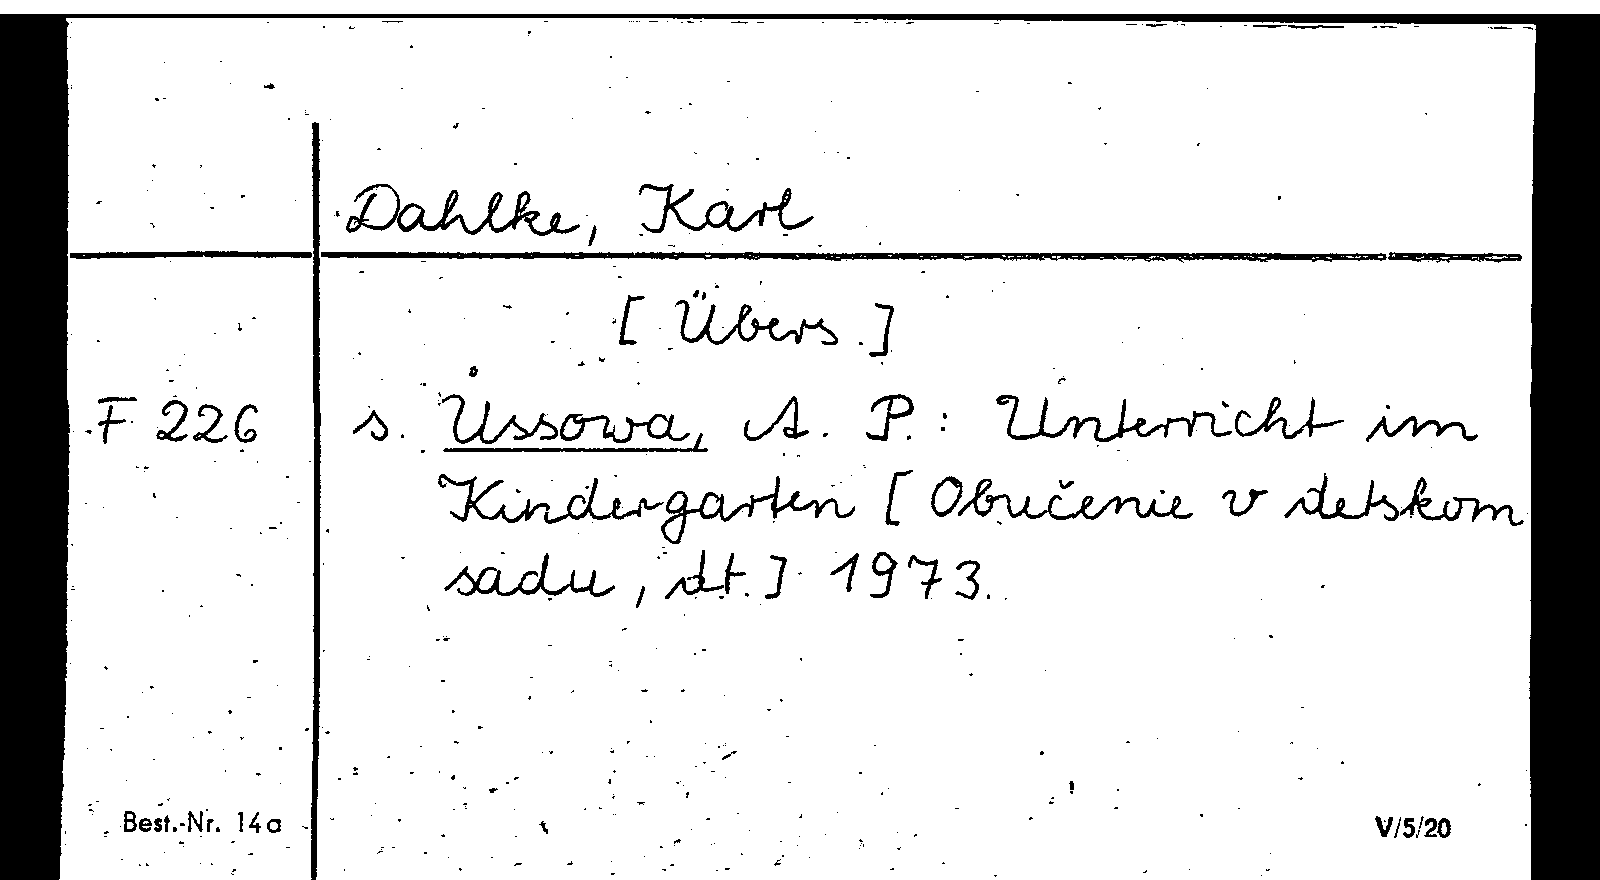 Dahlke, Karl
[ Übers. ]
F 226 s. Ussowa, A. P.: Unterricht im
Kindergarten [ Obučenie v detskom
sadu, dt. ] 1973.
Best.-Nr. 14a V/5/20